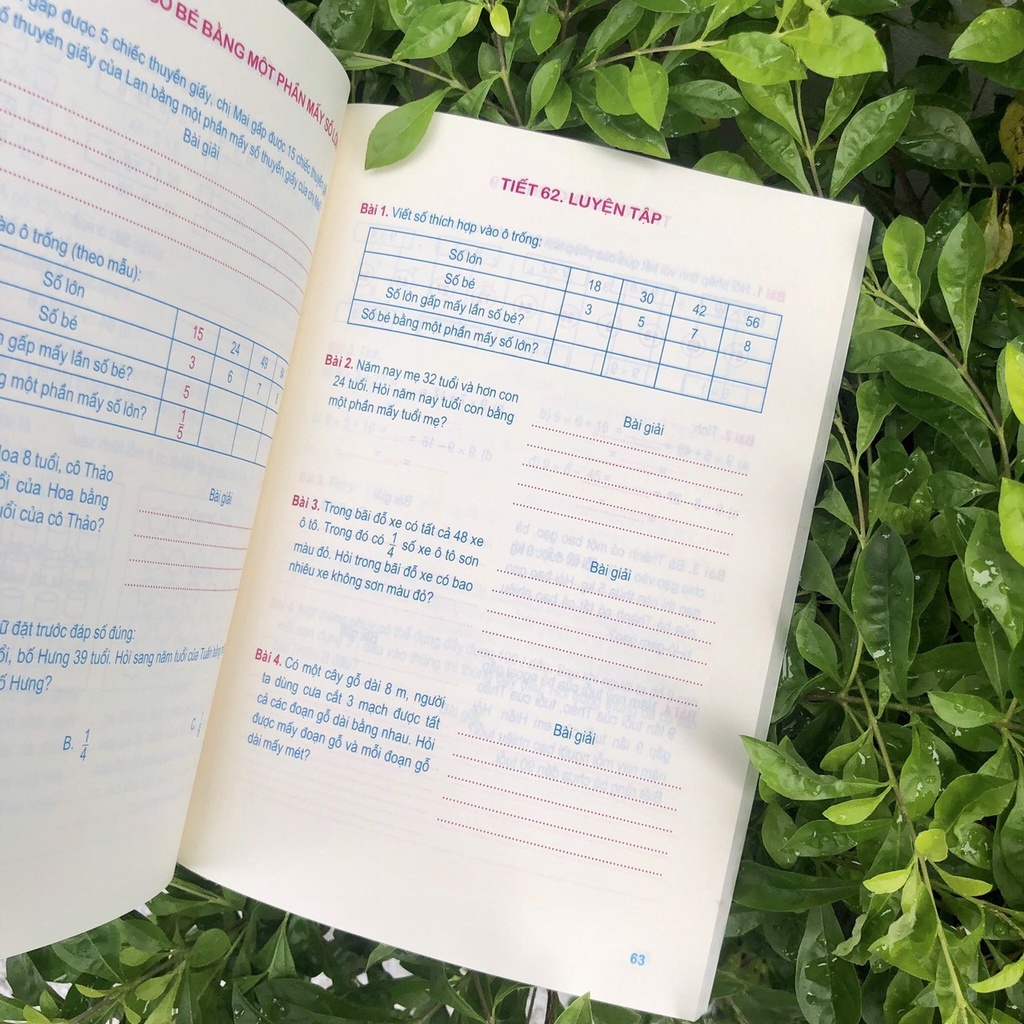 SỐ BÉ BẰNG MỘT PHẦN MẤY SỐ
gấp được 5 chiếc thuyền giấy, chị Mai gấp được 15 chiếc thuyền
số thuyền giấy của Lan bằng một phần mấy số thuyền giấy của chị Mai
Bài giải
vào ô trống (theo mẫu):
Số lớn 15 24 49
Số bé 3 6 7
gấp mấy lần số bé? 5
một phần mấy số lớn? 1/5
Hoa 8 tuổi, cô Thảo
tuổi của Hoa bằng
tuổi của cô Thảo?
Bài giải
đặt trước đáp số đúng:
bố Hưng 39 tuổi. Hỏi sang năm tuổi của Tuấn
bố Hưng?
B. 1/4
C.
TIẾT 62. LUYỆN TẬP
Bài 1. Viết số thích hợp vào ô trống:
Số lớn 18 30 42 56
Số bé 3 5 7 8
Số lớn gấp mấy lần số bé?
Số bé bằng một phần mấy số lớn?
Bài 2. Năm nay mẹ 32 tuổi và hơn con
24 tuổi. Hỏi năm nay tuổi con bằng
một phần mấy tuổi mẹ?
Bài giải
Bài 3. Trong bãi đỗ xe có tất cả 48 xe
ô tô. Trong đó có 1/4 số xe ô tô sơn
màu đỏ. Hỏi trong bãi đỗ xe có bao
nhiêu xe không sơn màu đỏ?
Bài giải
Bài 4. Có một cây gỗ dài 8 m, người
ta dùng cưa cắt 3 mạch được tất
cả các đoạn gỗ dài bằng nhau. Hỏi
được mấy đoạn gỗ và mỗi đoạn gỗ
dài mấy mét?
Bài giải
63